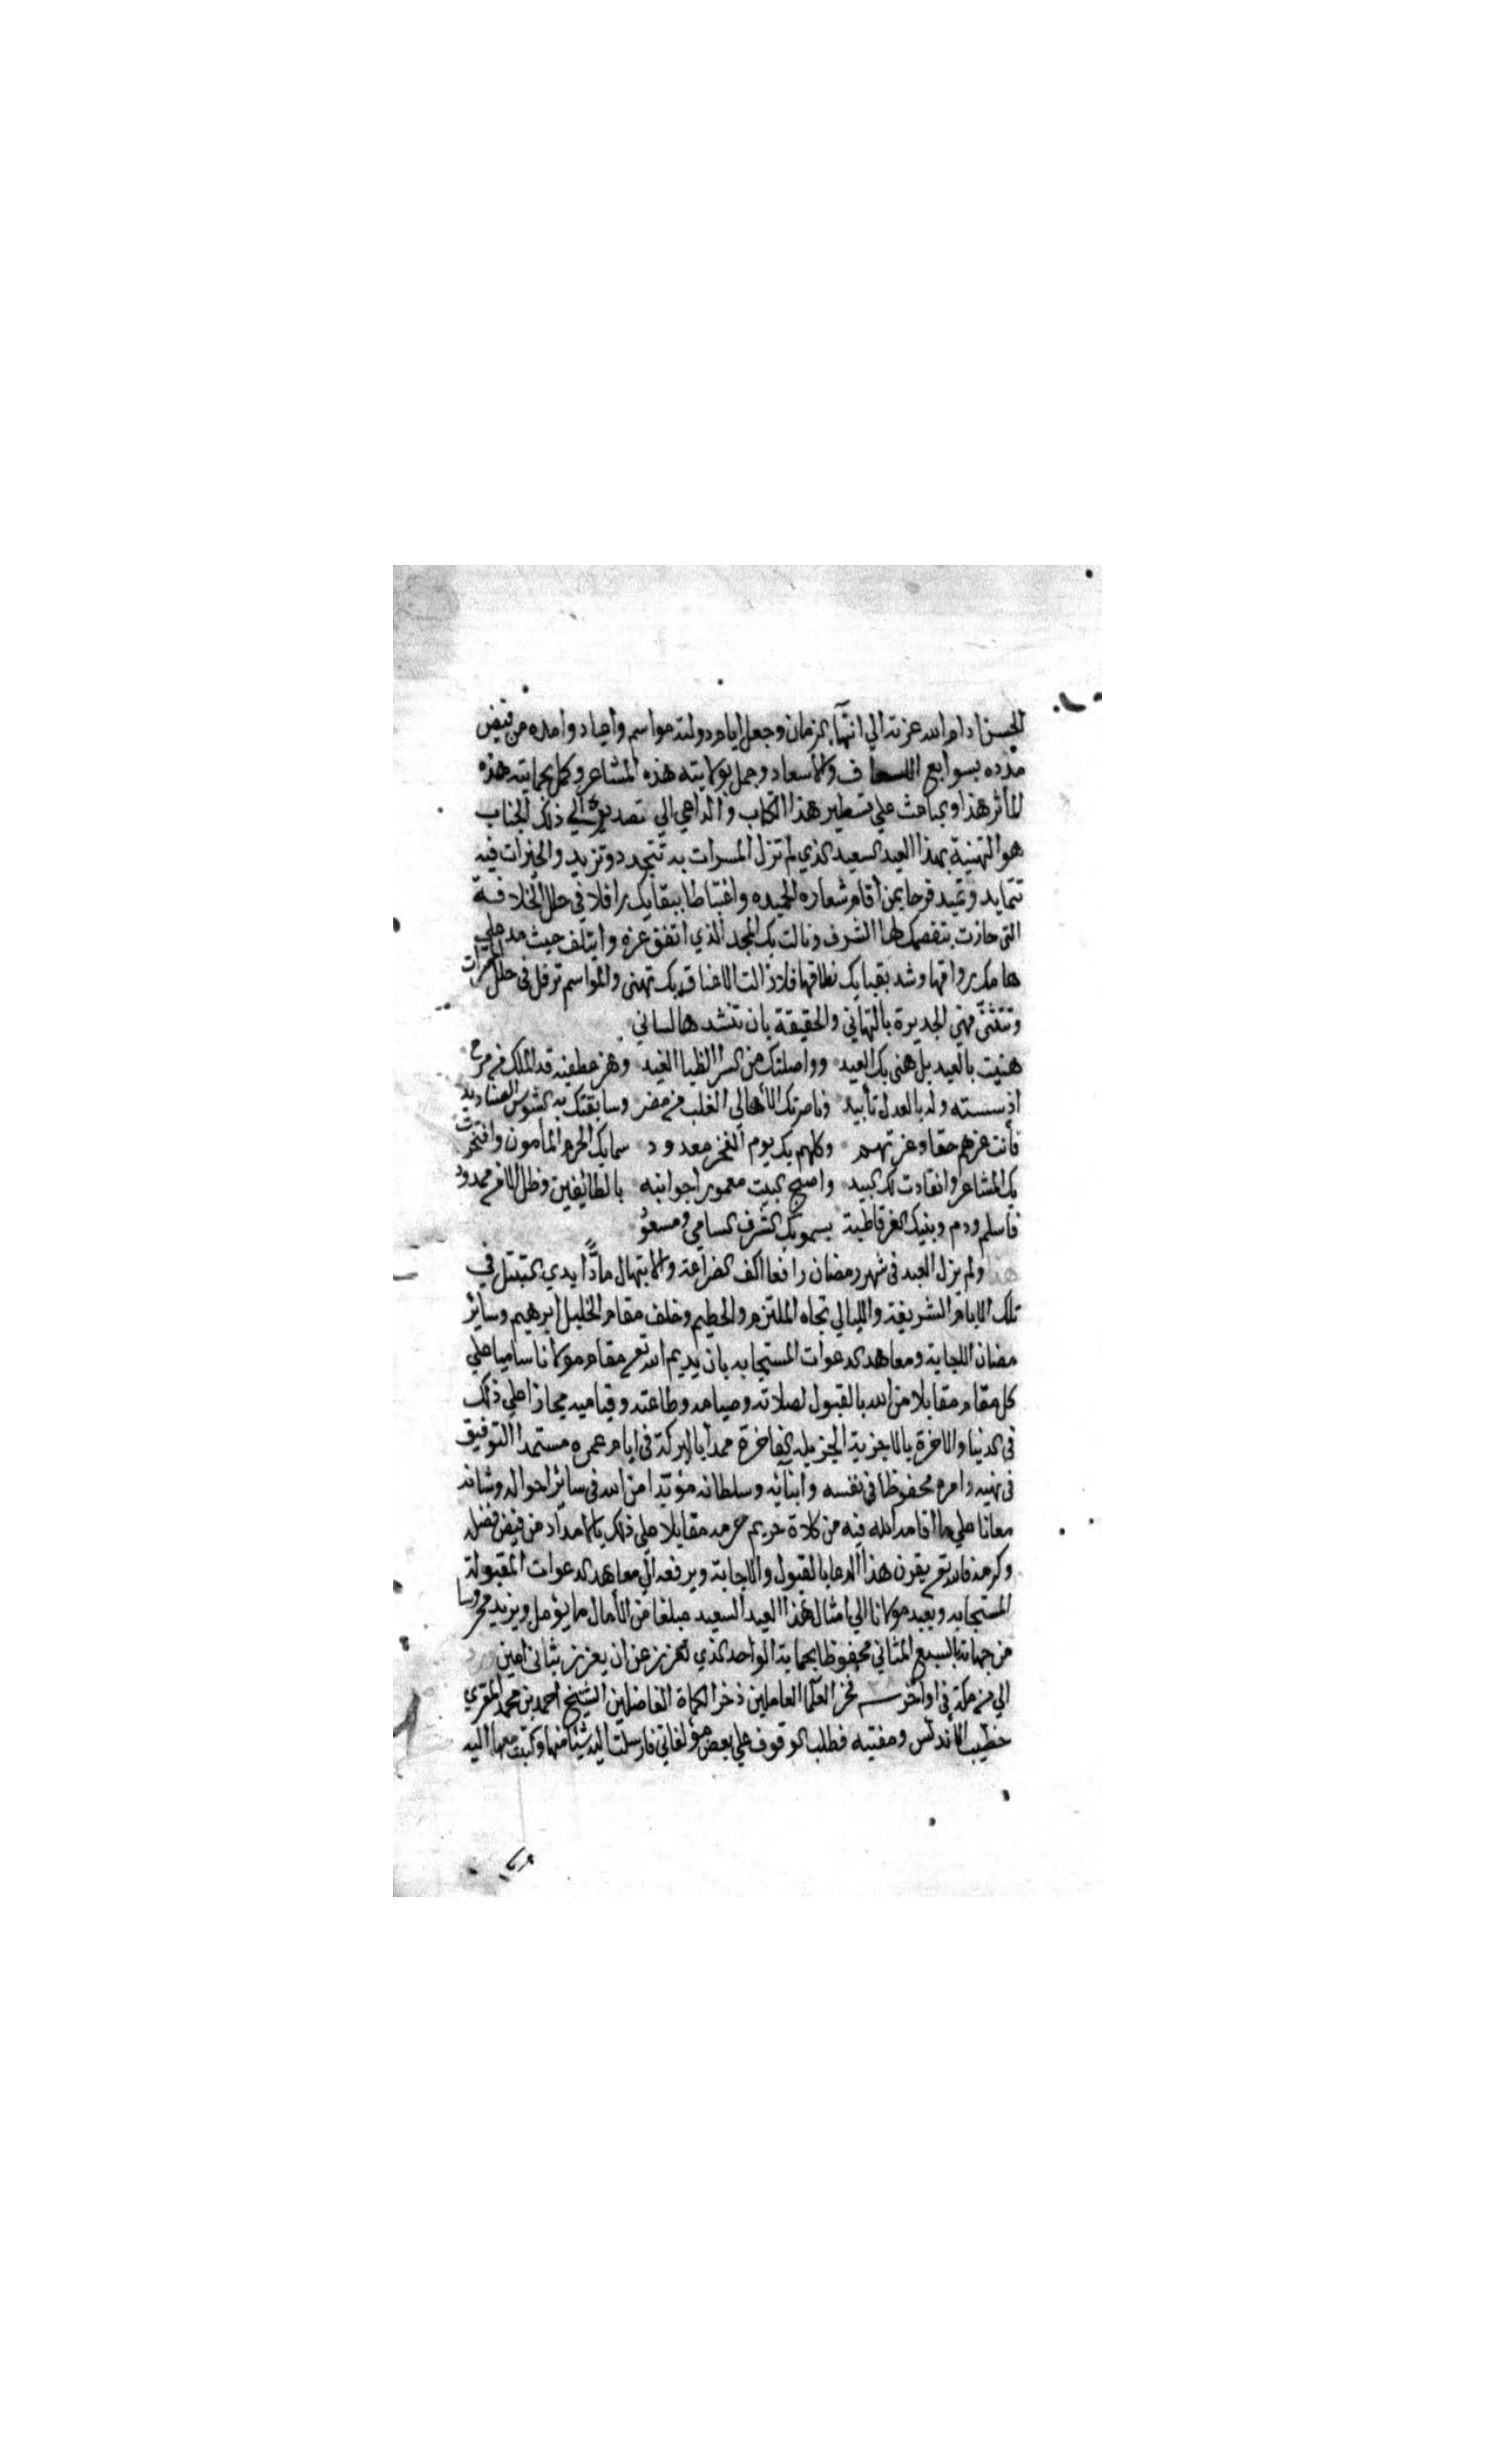 الحسن ادام الله عزته الي انتهآء الزمان وجعل ايام دولته مواسم واعياد وامده من فيض
مدده بسوابغ الاسعاف والاسعاد وجمل بولايته هذه المشاعر وكمل بحمايته هذه
المأثر هذا والباعث علي تسطير هذا الكتاب والداعي الي تصديره الي ذلك الجناب
هو التهنية بهذا العيد السعيد الذي لم تزل المسرات به تتجدد وتزيد والخيرات فيه
تتمايد وتميد فرحا بمن أقام شعاره الحميده واغتباطا ببقايك رافلا في حلل الخلافة
التي حازت بتقمصك لها الشرف ونالت بك المجد الذي اتفق عزه وايتلف حيث مد علي
هامك رواقها وشد بقبايك نطاقها فلا زالت الاعناق بك تهني والمواسم ترفل في حلل المسرات
وتتثني فهي الجديرة بالتهاني والحقيقة بان تنشدها لساني
هنيت بالعيد بل هني بك العيد وواصلتك من السر الظبا الغيد وهز عطفيه قد الملك من مرح
اذ سسته وله بالعدل تأييد وناصرتك الأهالي الغلب من مضر وسابقتك به الشوس الصناديد
فأنت عزهم حقا وعزتهم وكلهم بك يوم الفخر معدود سما بك الحرم المأمون وافتخرت
بك المشاعر وانقادت لك البيد واصبح البيت معمورا جوانبه بالطائفين وظل الامن ممدود
فاسلم ودم وبنيك الغر قاطبة يسمو بك الشرف السامي ومسعود
هذا ولم يزل العبد في شهر رمضان رافعا اكف الضراعة والابتهال مادًّا ايدي التبتل في
تلك الايام الشريفة والليالي تجاه الملتزم والحطيم وخلف مقام الخليل ابرهيم وسائر
مضان الاجابة ومعاهد الدعوات المستجابه بان يديم الله تع مقام مولانا ساميا علي
كل مقام مقابلا من الله بالقبول لصلاته وصيامه وطاعته وقيامه مجازا علي ذلك
في الدنيا والاخرة بالاجزية الجزيله الفاخرة ممدا بالبركة في ايام عمره مستمدا التوفيق
في نهيه وامره محفوظا في نفسه وابنآئه وسلطانه مؤيدا من الله في سائر احواله وشانه
معانا علي ما اقامه الله فيه من كلاة حريم حرمه مقابلا علي ذلك بالامداد من فيض فضله
وكرمه فالله تع يقرن هذا الدعا بالقبول والاجابة ويرفعه الي معاهد الدعوات المقبولة
المستجابه ويعيد مولانا الي امثال هذا العيد السعيد مبلغا من الأمال ما يؤمل ويزيد محروسا
من جهاته بالسبع المثاني محفوظا بحماية الواحد الذي تعزز عن ان يعزز بثاني امين
الي من مكة في اواخر فخر العلما العاملين ذخر الكماة الفاضلين الشيخ احمد بن محمد المقري
خطيب الأندلس ومفتيه فطلب الوقوف علي بعض مؤلفاتي فارسلت اليه شيئا منها وكتبت معها اليه